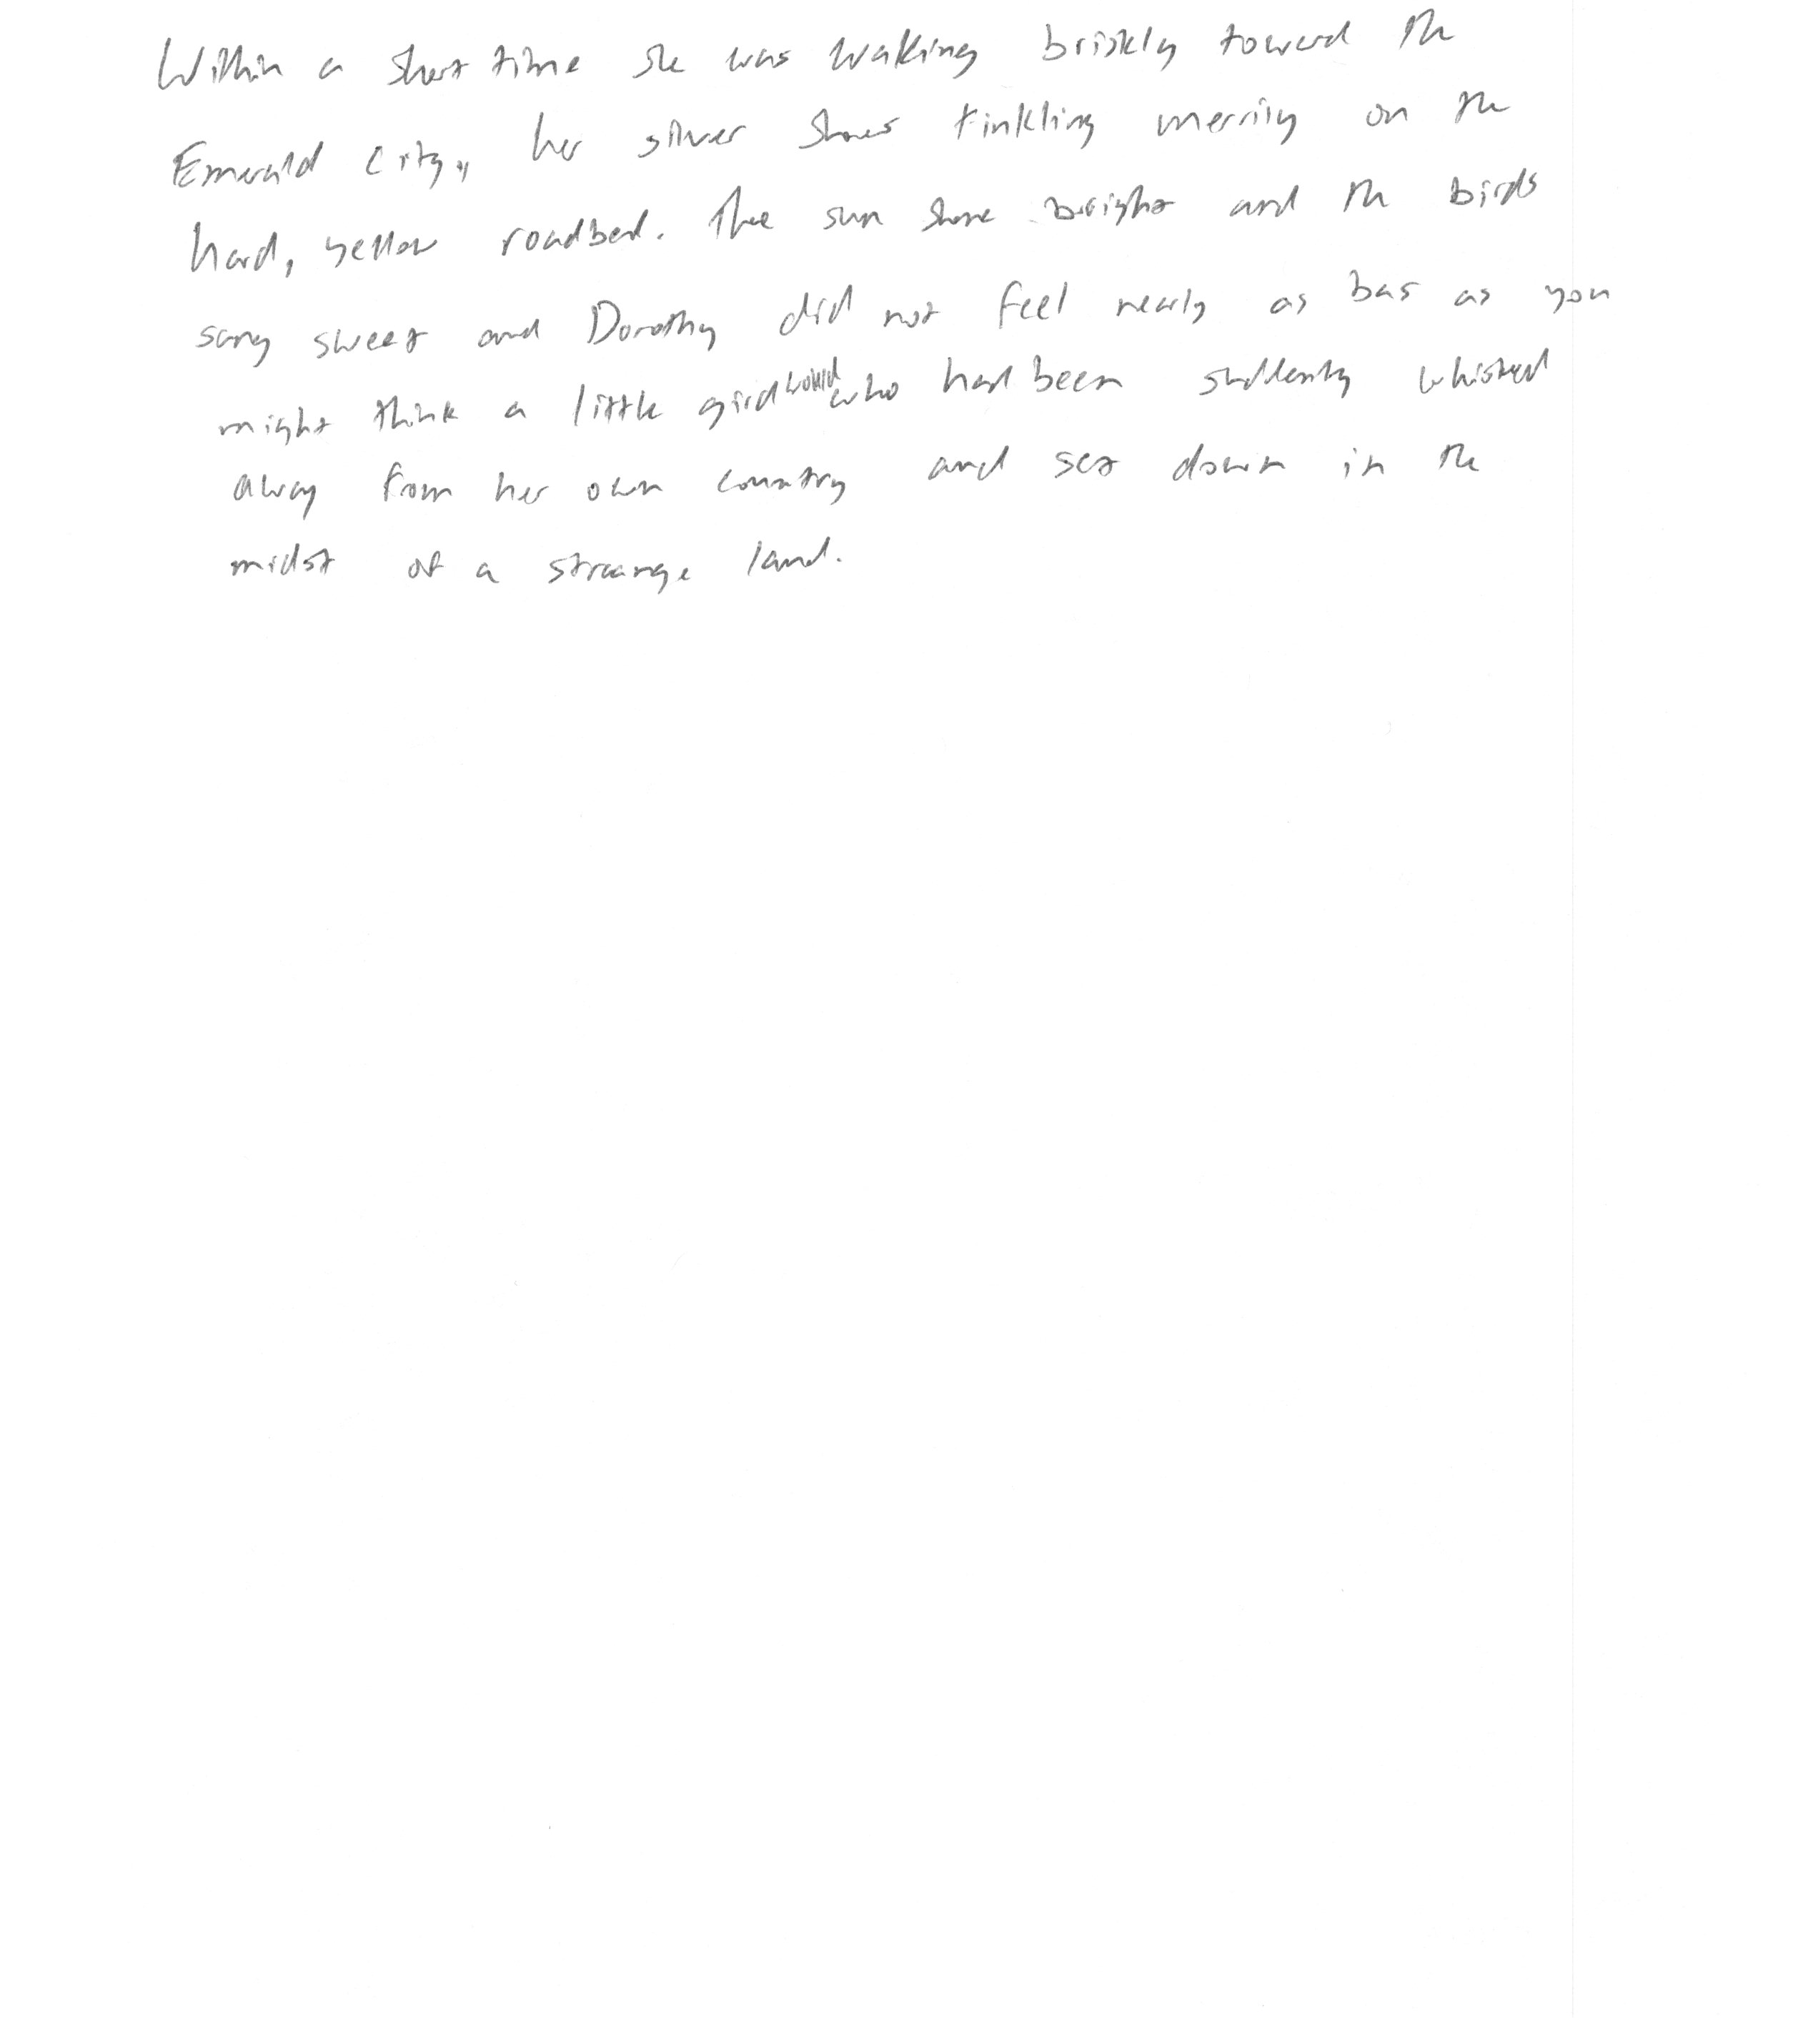 Within a short time she was walking briskly toward the
Emerald City, her silver shoes tinkling merrily on the
hard, yellow roadbed. The sun shone bright and the birds
sang sweet and Dorothy did not feel nearly as bas as you
might think a little girl would who had been suddenly whisked
away from her own country and set down in the
midst of a straange land.